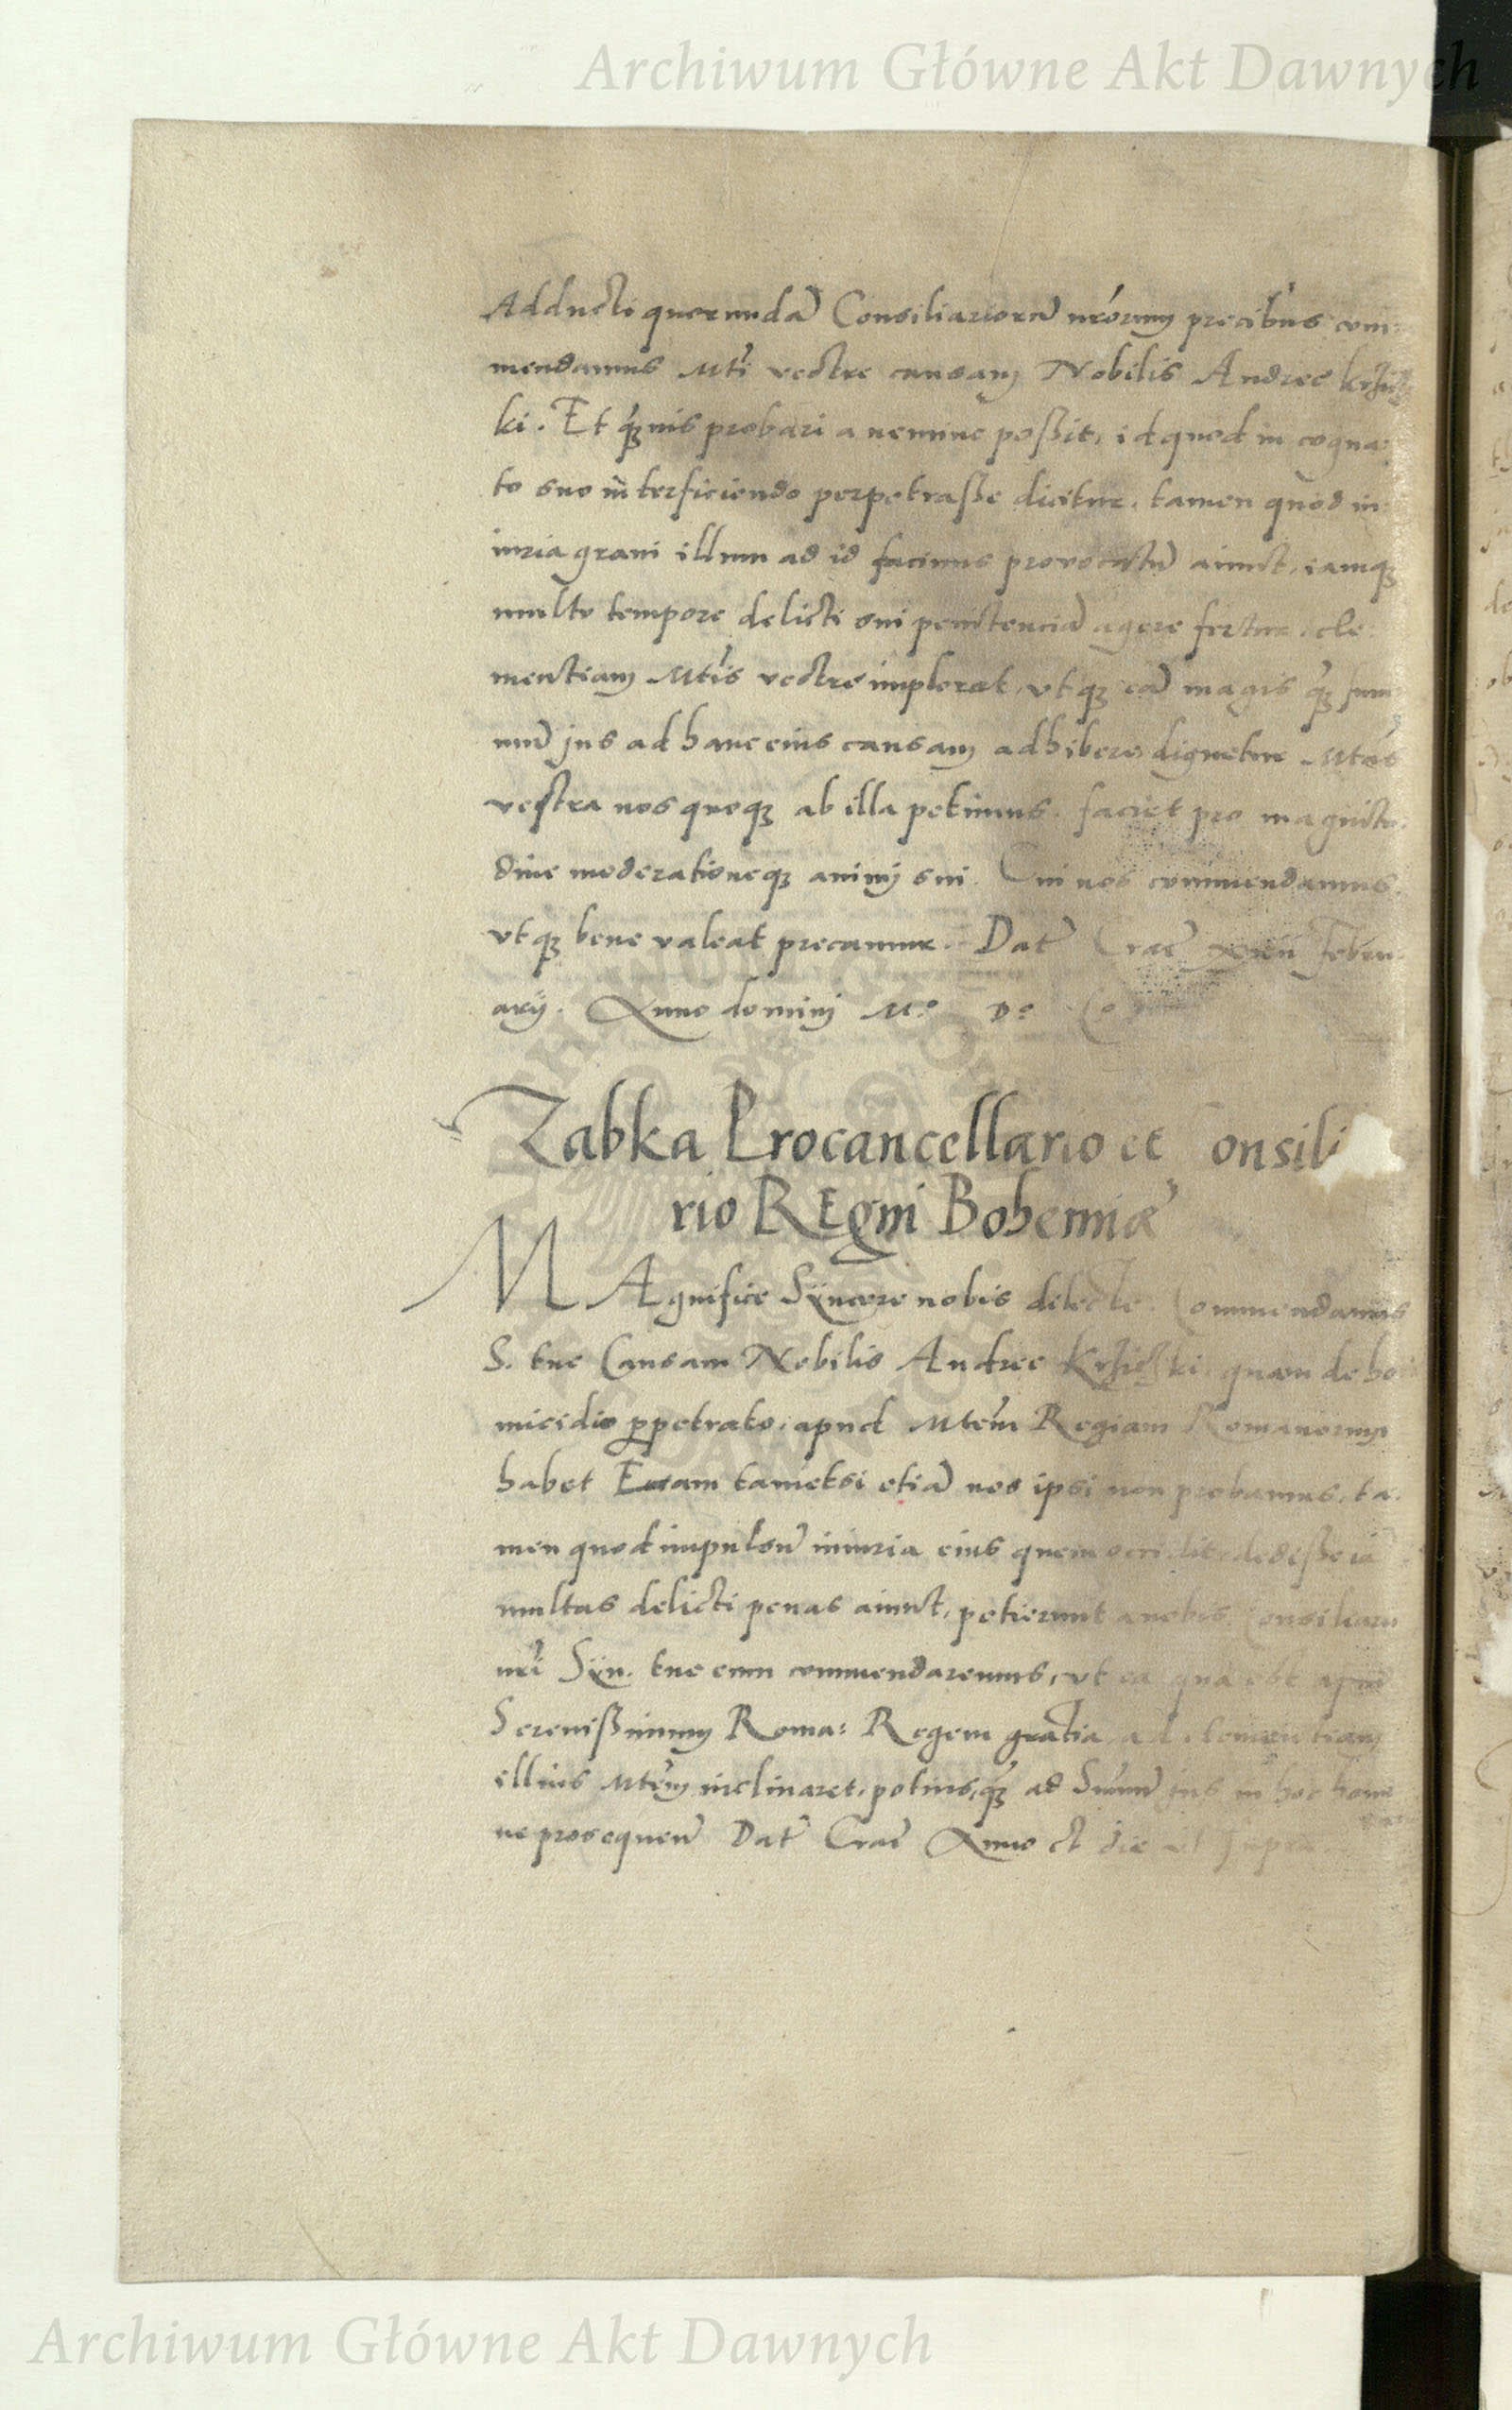 Archiwum Główne Akt Dawnych
Adducti quorundā Consiliariorū nrōrum precibus com:
mendamus Mti vestre causam Nobilis Andree
ki. Et q̃ꝫuis probari a nemine poßit, id quod in cogna:
to suo interficiendo perpetraße dicitur, tamen quod in:
iuria graui illum ad id facinus prouocatū aiunt, iamqꝫ
multo tempore delicti sui penitenciā agere fertur, cle:
mentiam Mtis vestre implorat, vtqꝫ eā magis q̃ꝫ sum:
mū jus ad hanc eius causam adhibere dignetur Mtas
vestra nos quoqꝫ ab illa petimus. faciet pro magnitu:
dine moderationeqꝫ animj sui. Cui nos commendamus.
vtqꝫ bene valeat precamur. Dat̃ Crac̃ Febru:
arij. Anno dominj Mº Dº
Zabka Procancellario et onsili
rio REgni Bohemiæ
MAgnifice Syncere nobis dilecte. Commendamus
S. tue Causam Nobilis Andree Krzic ki, quam de ho
micidio ꝑpetrato, apud Mtem Regiam Romanorum
habet Eam tametsi etiā nos ipsi non probamus, ta:
men quod impulsū iniuria eius quem occidit, dediße iā
multas delicti penas aiunt, petierunt a nobis Consiliarii
nrī Syn. tue eum commendaremus, vt ea qua est apud
Sereniß­imum Roma: Regem gratia, ad clementiam
illius Mtem inclinaret, potius, q̃ꝫ ad Sum̄ū jus in hoc homi
ne prosequen̄ Dat̃ Crac̃ Anno et die vt supra.
Archiwum Główne Akt Dawnych